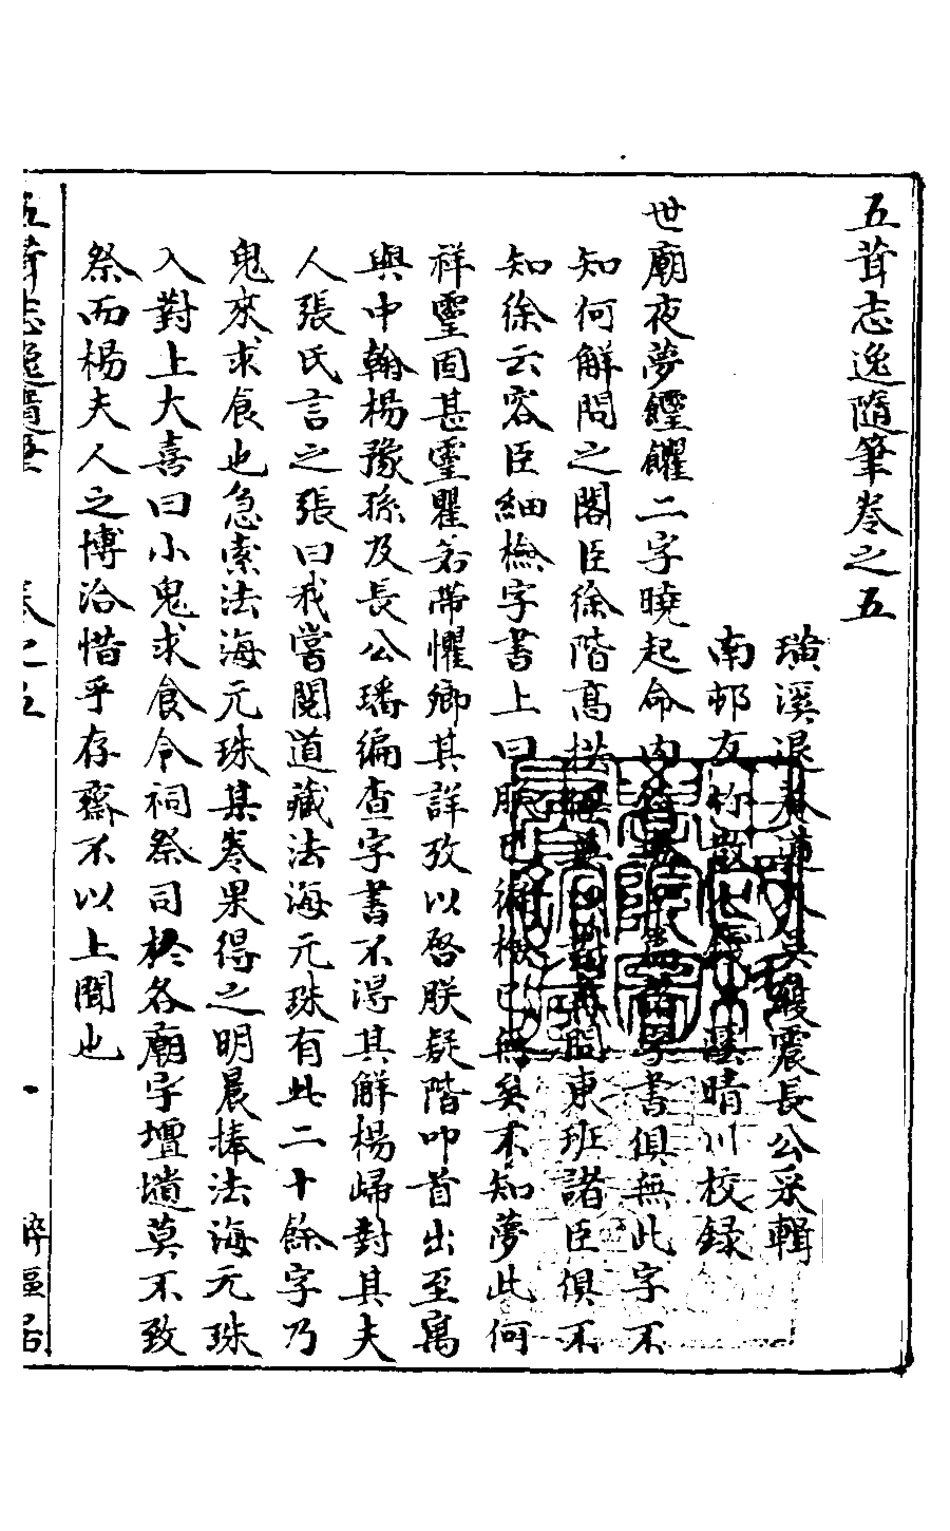 五茸志逸隨筆卷之五
璜溪退庵道人吳履震長公采輯
南邨友 散 晴川校録
世廟夜夢䭼䦆二字曉起命內 字書俱無此字不
知何解問之閣臣徐階高拱 對 問東班諸臣俱不
知徐云容臣細檢字書上曰朕已 檢已無矣不知夢此何
祥靈固甚靈瞿若帶懼卿其詳攷以啓朕疑階叩首出至寓
與中翰楊豫孫及長公璠編查字書不得其解楊歸對其夫
人張氏言之張曰我嘗閱道藏法海元珠有此二十餘字乃
鬼來求食也急索法海元珠某卷果得之明晨捧法海元珠
入對上大喜曰小鬼求食令祠祭司於各廟宇壇壝莫不致
祭而楊夫人之博洽惜乎存齋不以上聞也
五茸志逸隨筆 卷之五 一 醉漚居